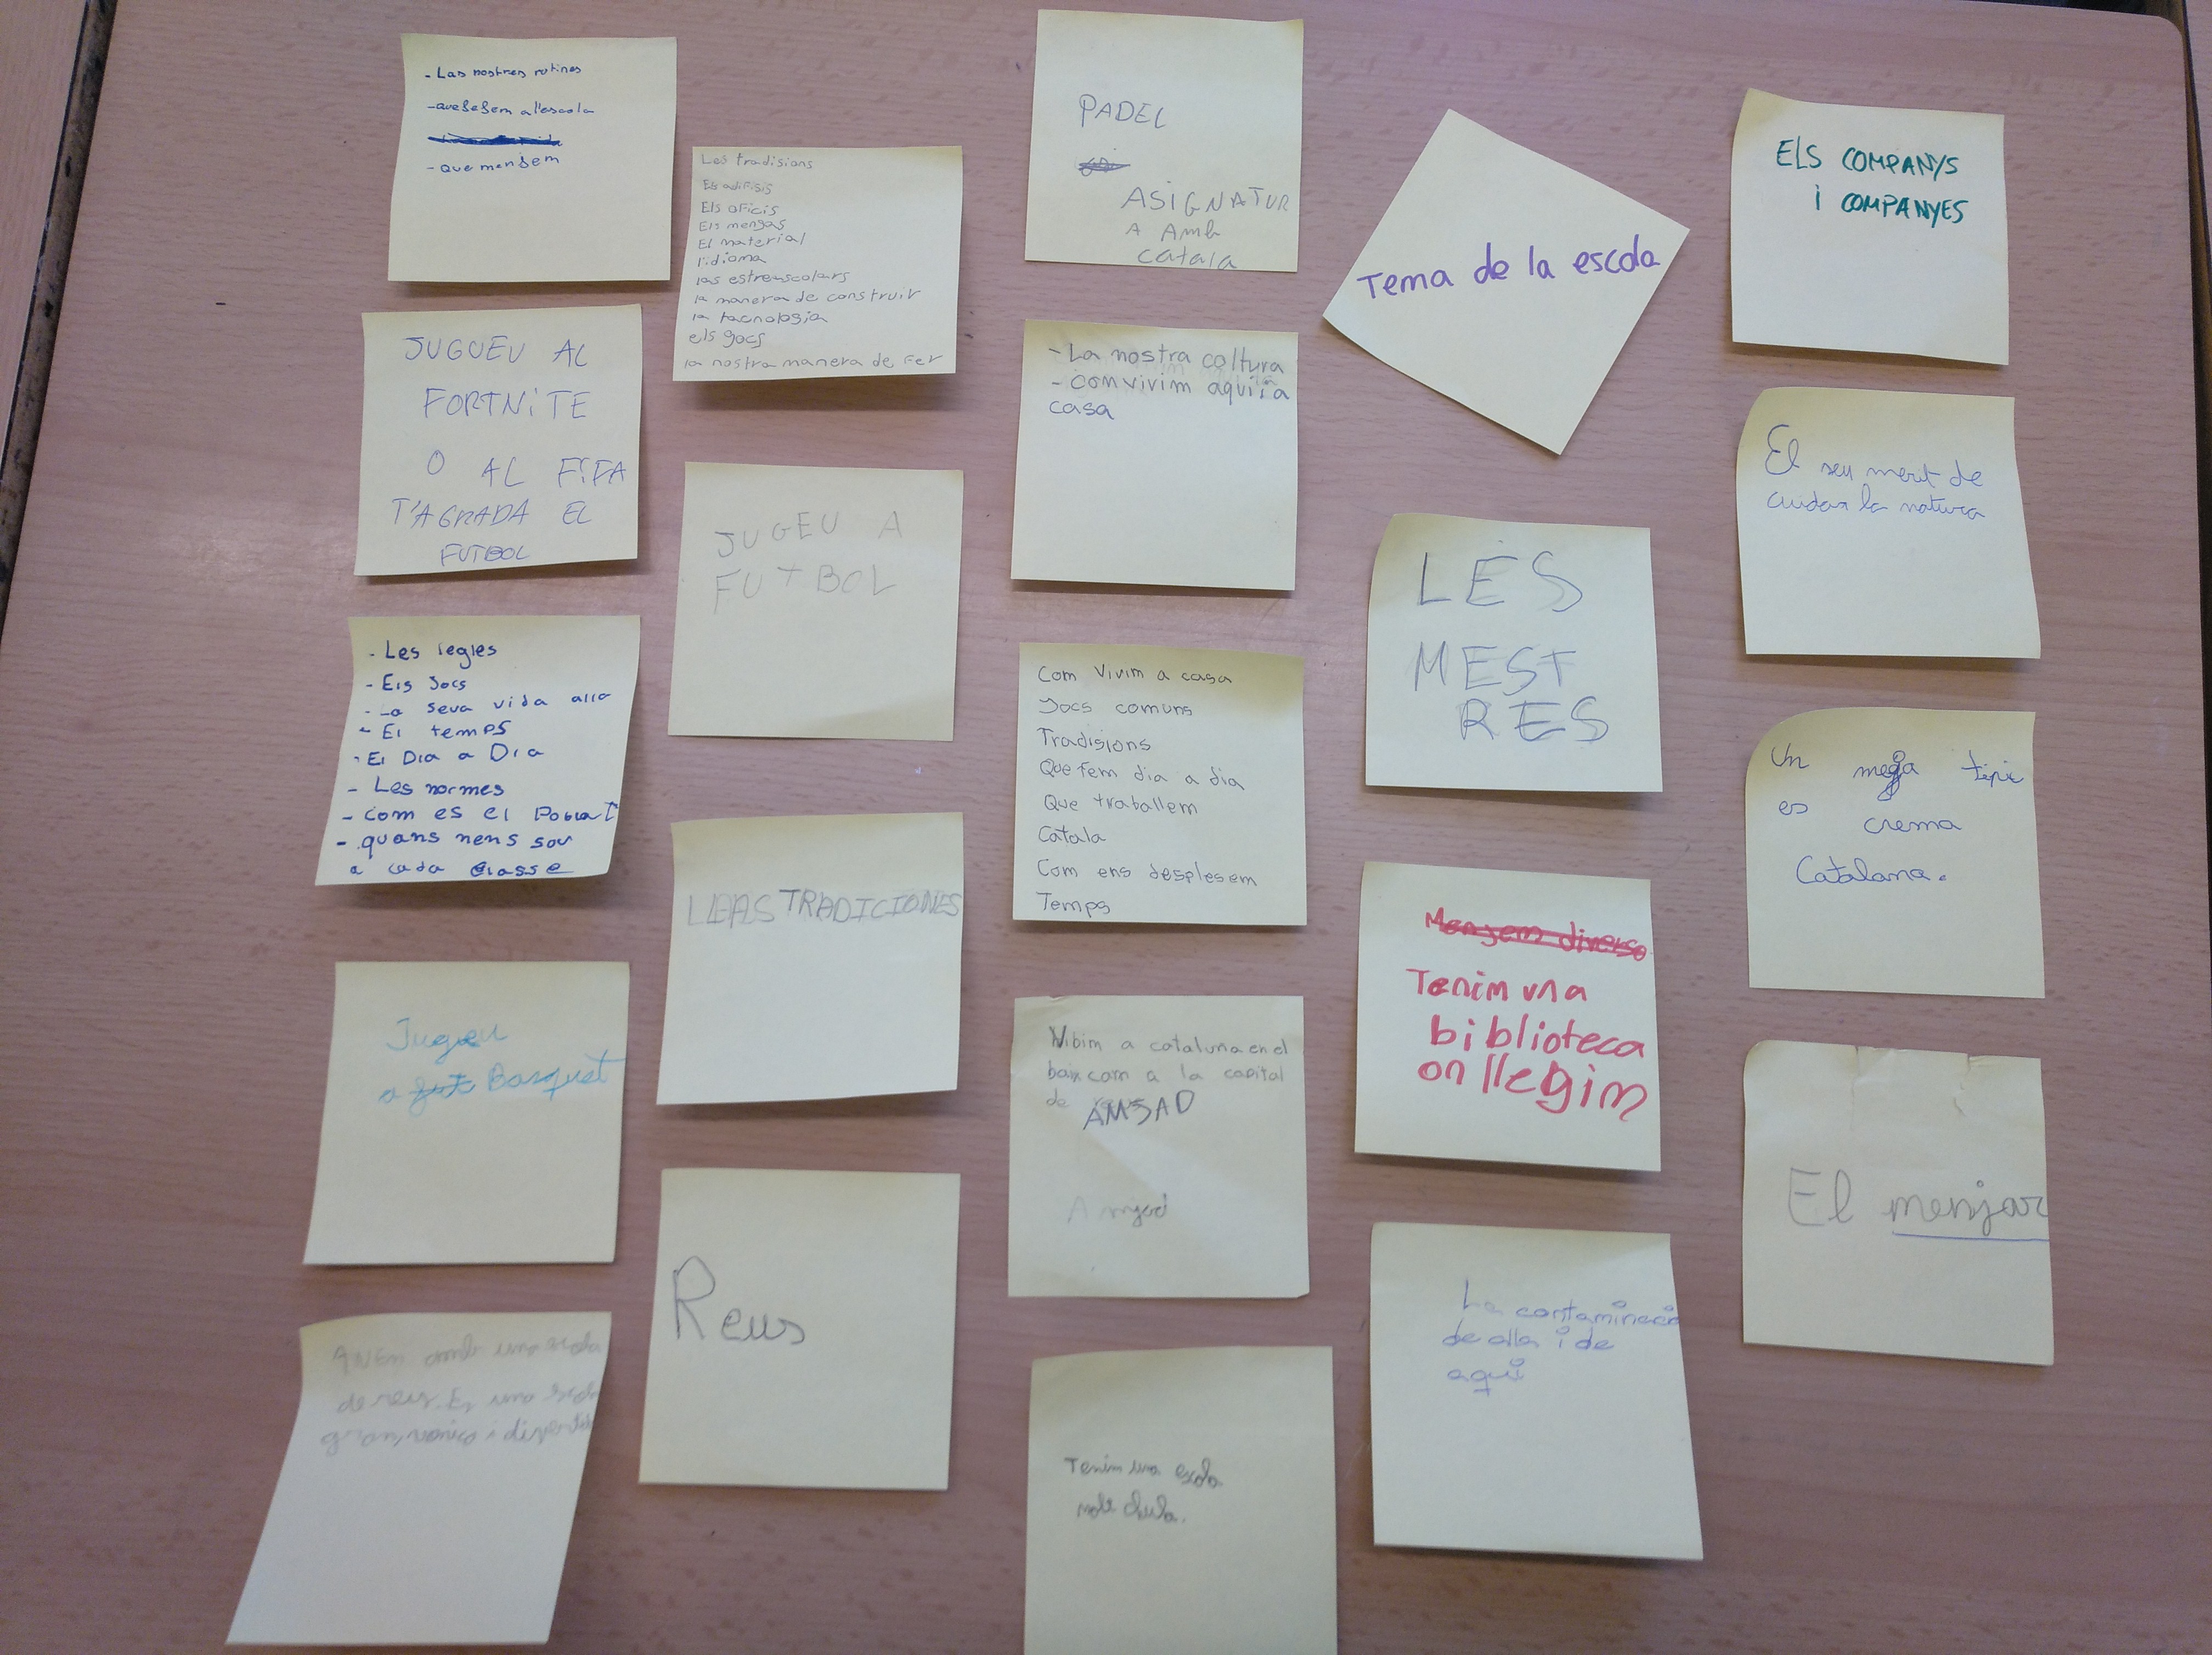 - Las nostres rutines
- que fefem a l'escola
- que mensem
JUGUEU AL
FORTNiTE
O AL FiFA
T'AGRADA EL
FUTBOL
- Les regles
- Els Jocs
- La seva vida alla
- El temps
- El Dia a Dia
- Les normes
- com es el Poblat
- quans nens sou
a cada classe
Jugeu
a Basquet
ANEm amb una escola
de reus. Es una escola
gran, i divertida
Les tradisions
Es adifisis
Els oficis
Els mengas
El material
l'idioma
las estreuscolars
la manera de construir
la tacnologia
els gocs
la nostra manera de Fer
JUGEU A
FUTBOL
TRADICIONES
Reus
PADEL
ASiGNATUR
A Amb
Catala
- La nostra coltura
- convivim aqui i a
casa
Com vivim a casa
Jocs comuns
Tradisions
Que fem dia a dia
Que traballem
Catala
Com ens desplesem
Temps
Vibim a cataluna en el
baix cam a la capital
de
AMJAD
Amjad
Tenim una escola
molt chula.
Tema de la escola
LES
MEST
RES
Menjem diverso
Tenim una
biblioteca
on llegim
La contaminacio
de alla i de
aqui
ELS COMPANYS
i COMPANYES
El seu merit de
cuidar la natura
Un meja tipic
es crema
Catalana.
El menjar